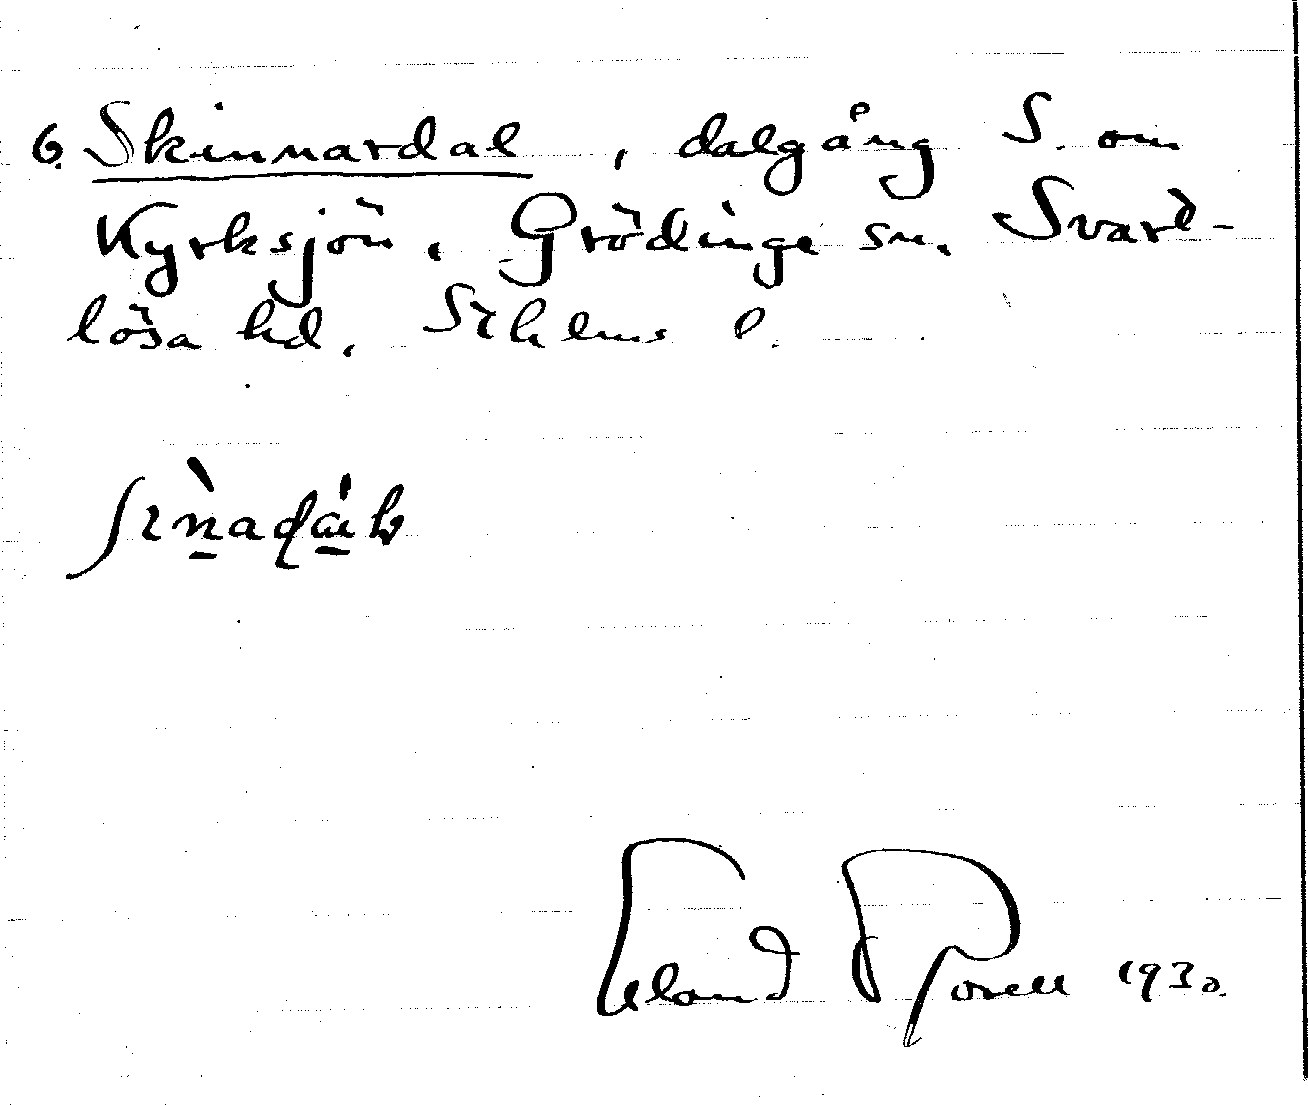 6. Skinnardal, dalgång S. om
Kyrksjön. Grödinge sn. Svart-
lösa hd. Sthlms l.
Erland Rosell 1930.